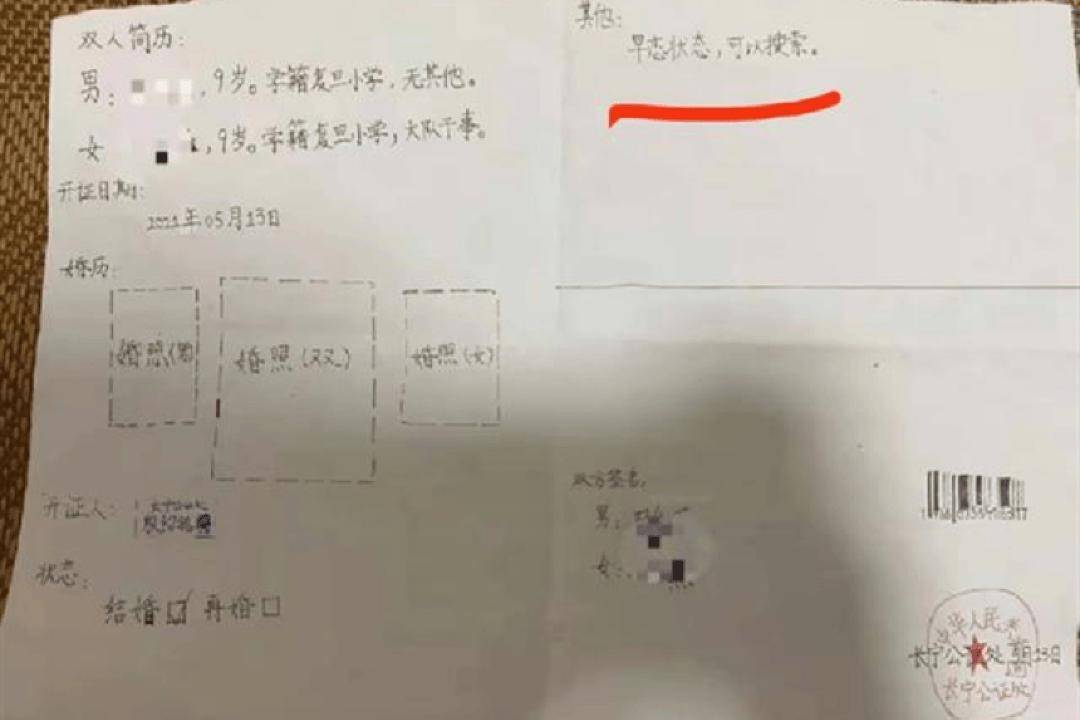 双人简历:
男: ,9岁。学籍复旦小学,无其他。
女 ,9岁。学籍复旦小学,大队干事。
开证日期:
2021年05月13日
婚历:
婚照(男)
婚照(双)
婚照(女)
开证人:
状态:
结婚 再婚
其他:
早恋状态,可以搜索。
双方签名:
男:
女:
华人民
长宁公证处 13日
长宁公证处